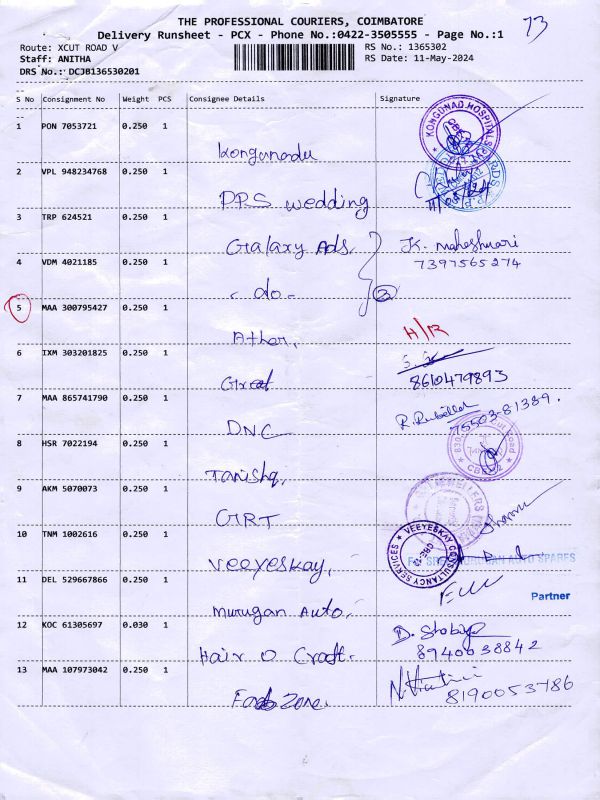 THE PROFESSIONAL COURIERS, COIMBATORE
Delivery Runsheet - PCX - Phone No.:0422-3505555 - Page No.:1
73
Route: XCUT ROAD V
RS No.: 1365302
Staff: ANITHA
RS Date: 11-May-2024
DRS No.: DCJB136530201
S No Consignment No Weight PCS Consignee Details Signature
1 PON 7053721 0.250 1
Kongunadu
KONGUNAD HOSPITALS
2 VPL 948234768 0.250 1
PPS wedding
3 TRP 624521 0.250 1
Galaxy Ads. K. Maheshwari
7397565274
4 VDM 4021185 0.250 1
- do - 2
5 MAA 300795427 0.250 1
Ather, H/R
6 IXM 303201825 0.250 1
Great 8610479893
7 MAA 865741790 0.250 1
DNC 75503-81389.
8 HSR 7022194 0.250 1
Tanishq,
9 AKM 5070073 0.250 1
GRT
JEWELLERS
10 TNM 1002616 0.250 1
Veeyeskay,
VEEYESKAY CONSULTANCY SERVICES
AUTO SPARES
11 DEL 529667866 0.250 1
Murugan Auto.
Partner
12 KOC 61305697 0.030 1
Hair O Craft.
8940038842
13 MAA 107973042 0.250 1
Fab Zone.
8190053786